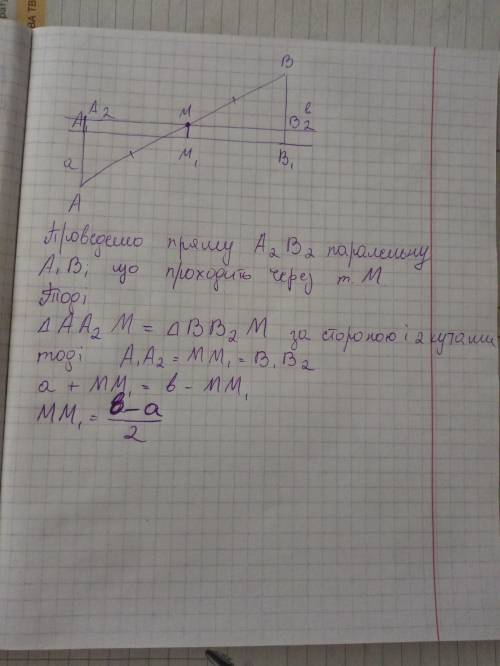 B
A₂
M
в
A₁
B₂
M₁
B₁
a
A
Проведемо пряму A₂B₂ паралельну
A₁B₁ що проходить через т. M
Тоді
Δ AA₂M = Δ BB₂M за стороною і 2 кутами
тоді A₁A₂ = MM₁ = B₁B₂
a + MM₁ = в - MM₁
MM₁ = в-a
2